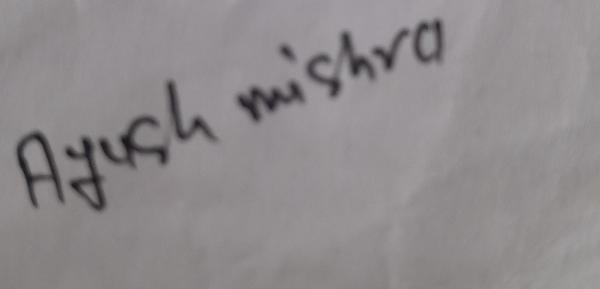 Ayush mishra